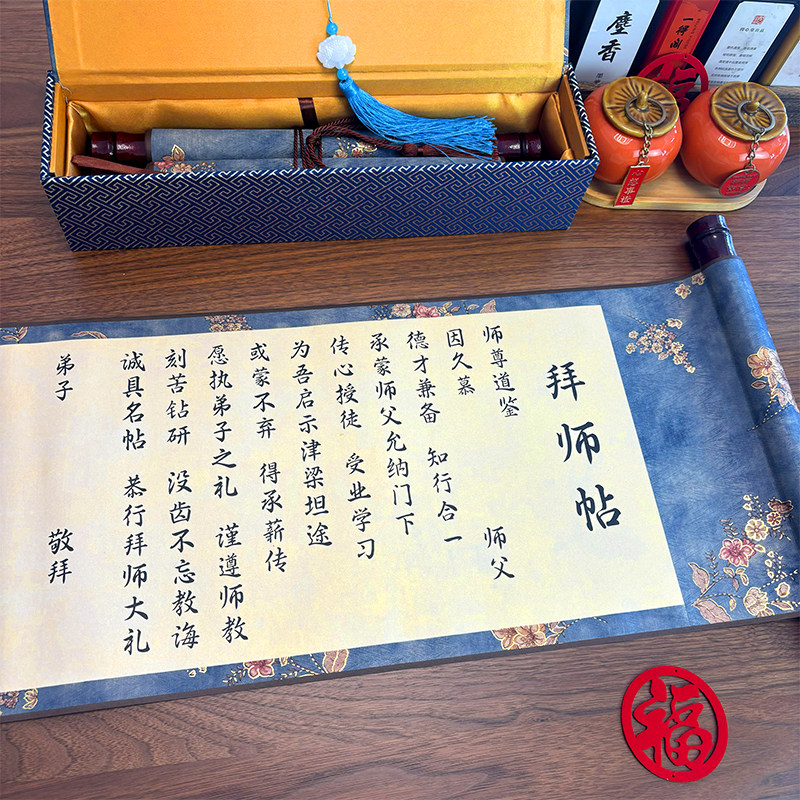 拜师帖
师尊道鉴
因久慕 师父
德才兼备 知行合一
承蒙师父允纳门下
传心授徒 受业学习
为吾启示津梁坦途
或蒙不弃 得承薪传
愿执弟子之礼 谨遵师教
刻苦钻研 没齿不忘教诲
诚具名帖 恭行拜师大礼
弟子 敬拜
福
福